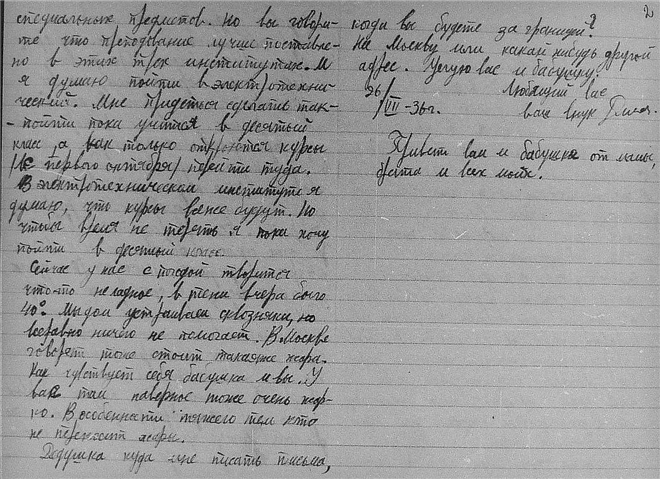 2
специальных предметов. Но вы говори-
те что преподование лучше поставле-
но в этих трёх институтах. И
я думаю пойти в электротехни-
ческий. Мне придеться сделать так-
- пойти пока учится в десятый
клас, а как только откроются курсы
(с первого октября) перейти туда.
В электротехническом институте я
думаю, что курсы всёже будут. Но
чтобы время не терять я пока хочу
пойти в десятый класс.
Сейчас у нас с погодой творится
что-то неладное, в тени вчера было
40°. Мы дом устраиваем сквозняки, но
всеравно ничего не помогает. В Москве
говорят тоже стоит такаяже жара.
Как чувствует себя бабушка и вы. У
вас там наверное тоже очень жар-
ко. В особенности тяжело тем кто
не переносит жары.
Дедушка куда мне писать письма,
когда вы будете за границей?
На Москву или какой нибудь другой
адрес. Целую вас и бабушку.
26/VII-36г. Любящий вас
ваш внук
Привет вам и бабушке от мамы,
и всех моих.